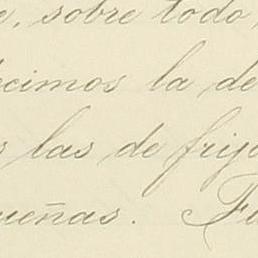 , sobre todo
ecimos la de
s las de frijo
ueñas. Fu